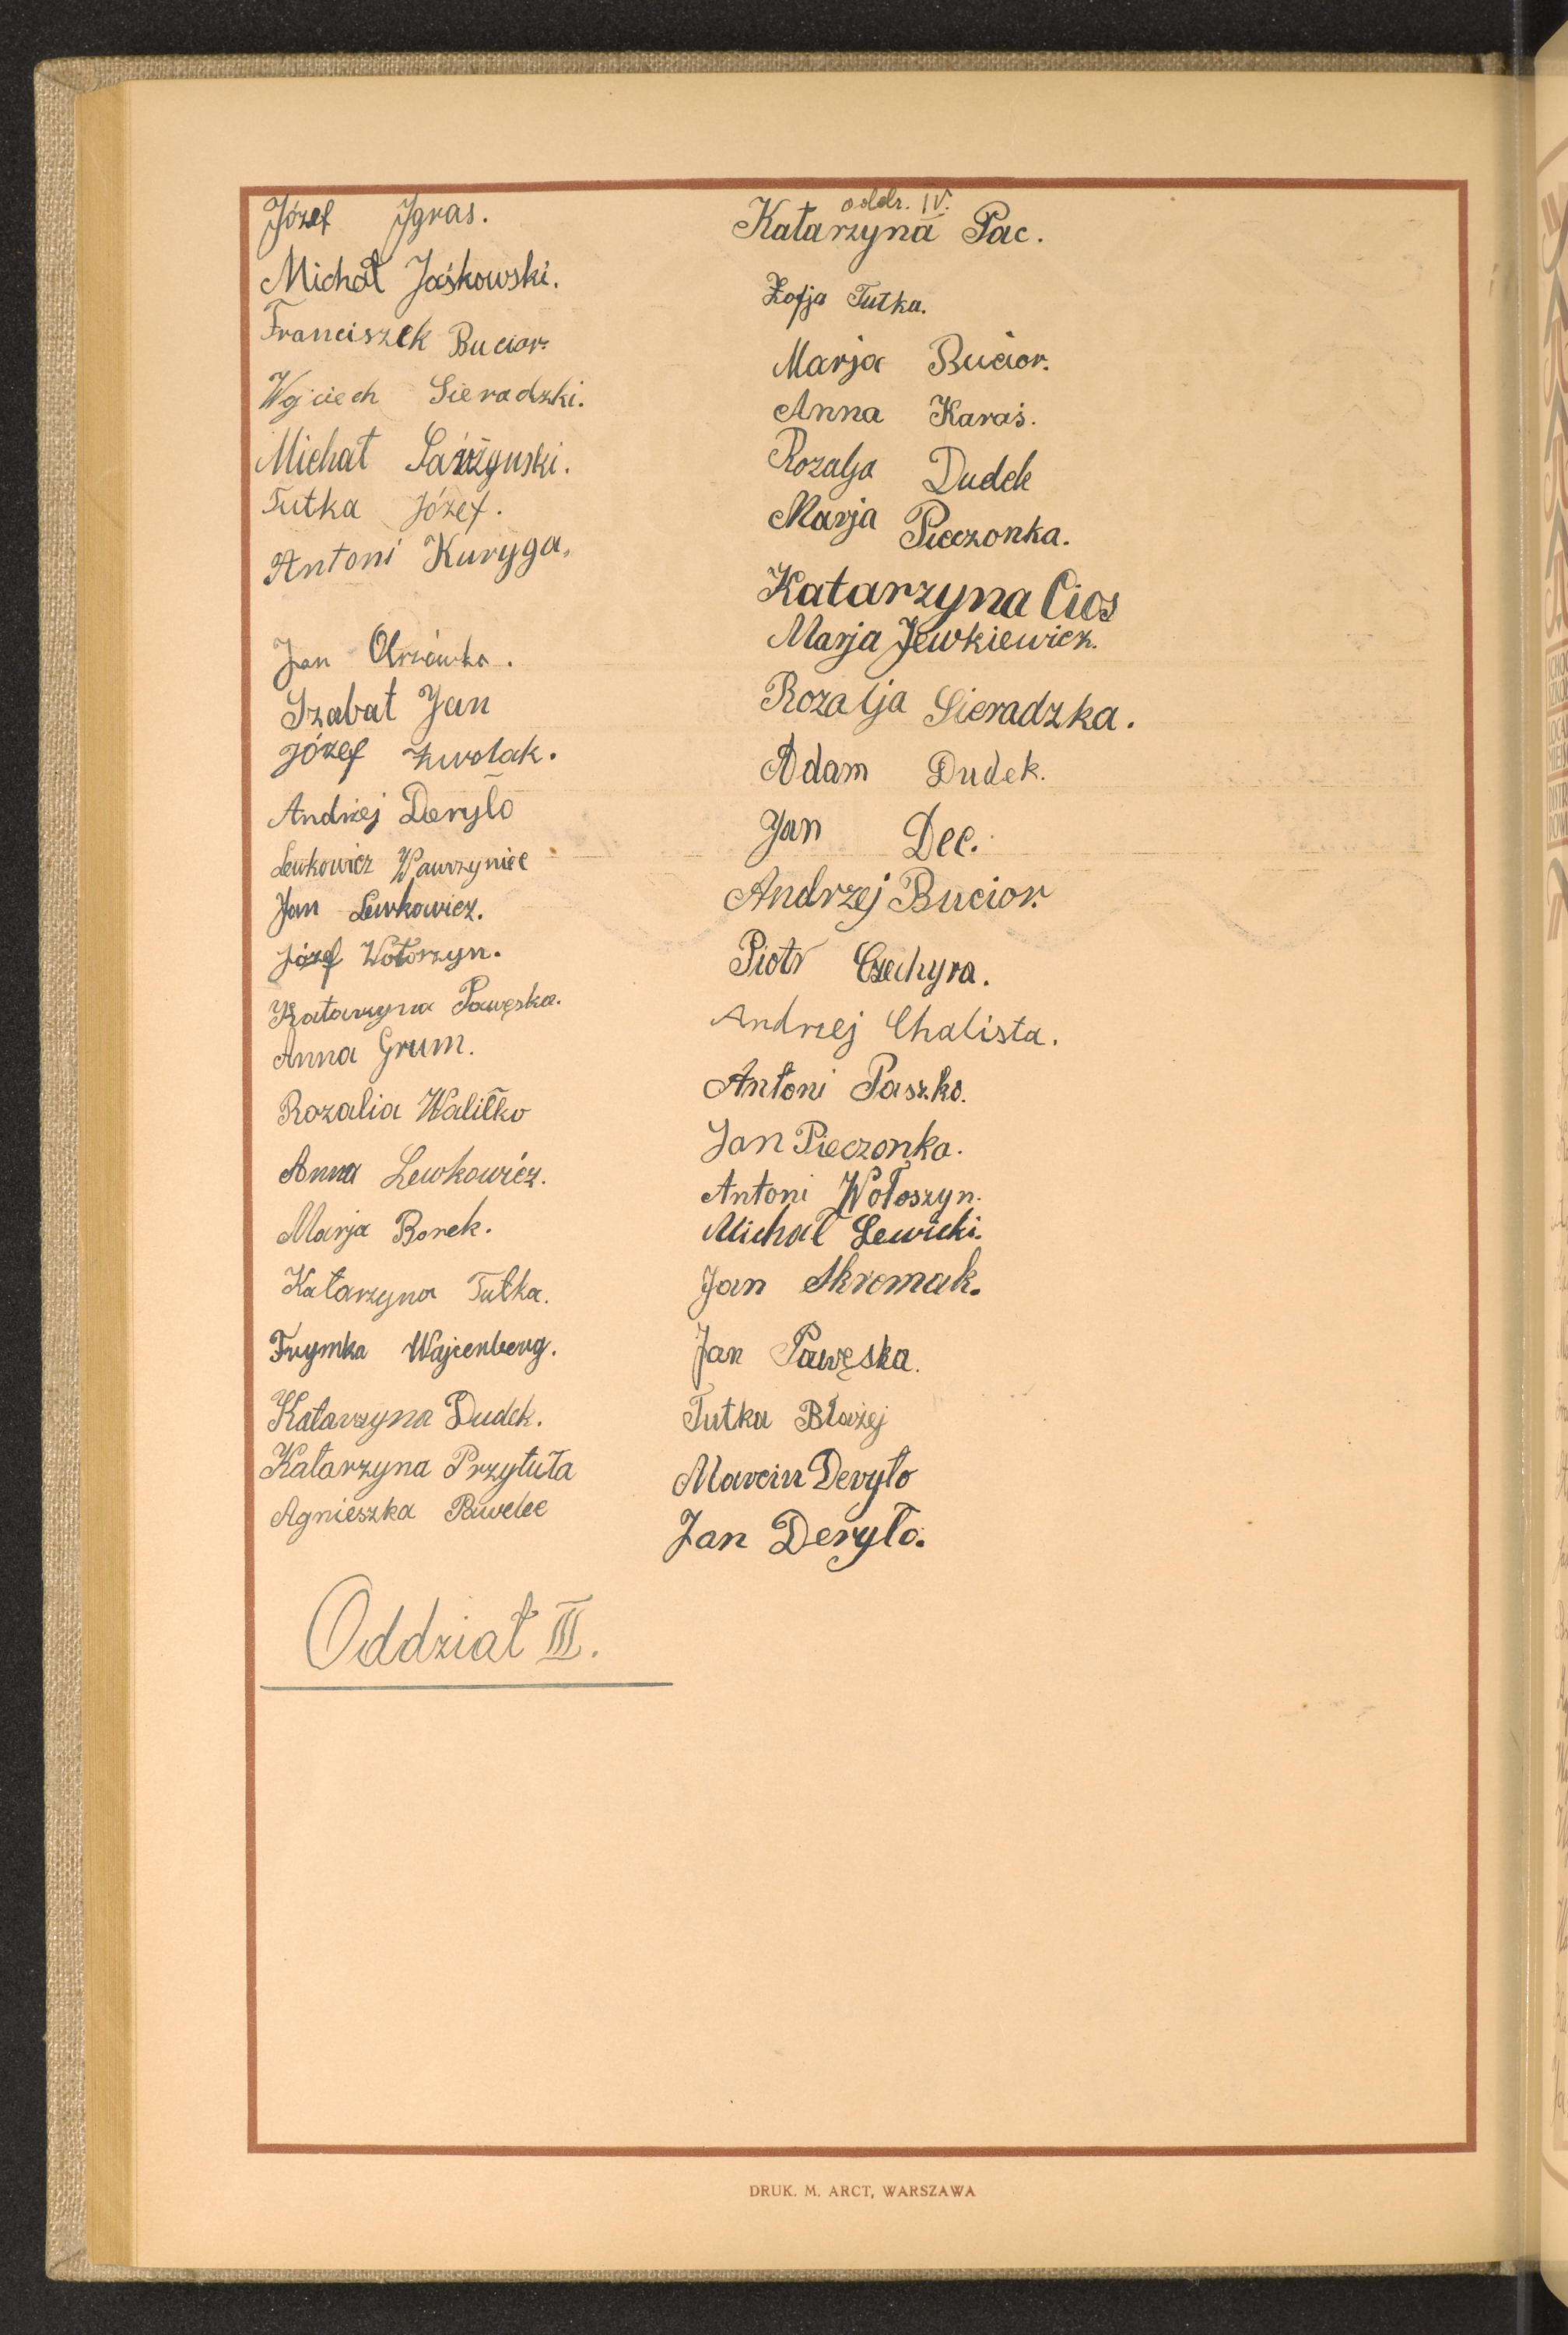 Józef Jgras.
Michał Jaśkowski.
Franciszek Bucior.
Wojciech Sieradzki.
Michał
Tutka Józef.
Antoni Kuryga.
Jan
Szabat Jan
Józef Zwolak.
Andrzej Deryło
Lewkowicz Wawrzyniec
Jan Lewkowicz.
Józef Wołoszyn.
Katarzyna Pawęska.
Anna Grum.
Rozalia Waliłko
Anna Lewkowicz.
Marja Borek.
Katarzyna Tutka.
Frymka Wajcenberg.
Katarzyna Dudek.
Katarzyna Przytuła
Agnieszka Pawelec
Oddział III.
oddz. IV.
Katarzyna Pac.
Zofja Tutka.
Marja Bucior.
Anna Karaś.
Rozalja Dudek
Marja Pieczonka.
Katarzyna Cios
Marja Jewkiewicz.
Rozalja Sieradzka.
Adam Dudek.
Jan Dec.
Andrzej Bucior.
Piotr Czechyra.
Andrzej Chalista.
Antoni Paszko.
Jan Pieczonka.
Antoni Wołoszyn.
Michał Lewicki.
Jan Skromak.
Jan Pawęska.
Tutka Błażej
Marcin Deryło
Jan Deryło.
DRUK. M. ARCT, WARSZAWA